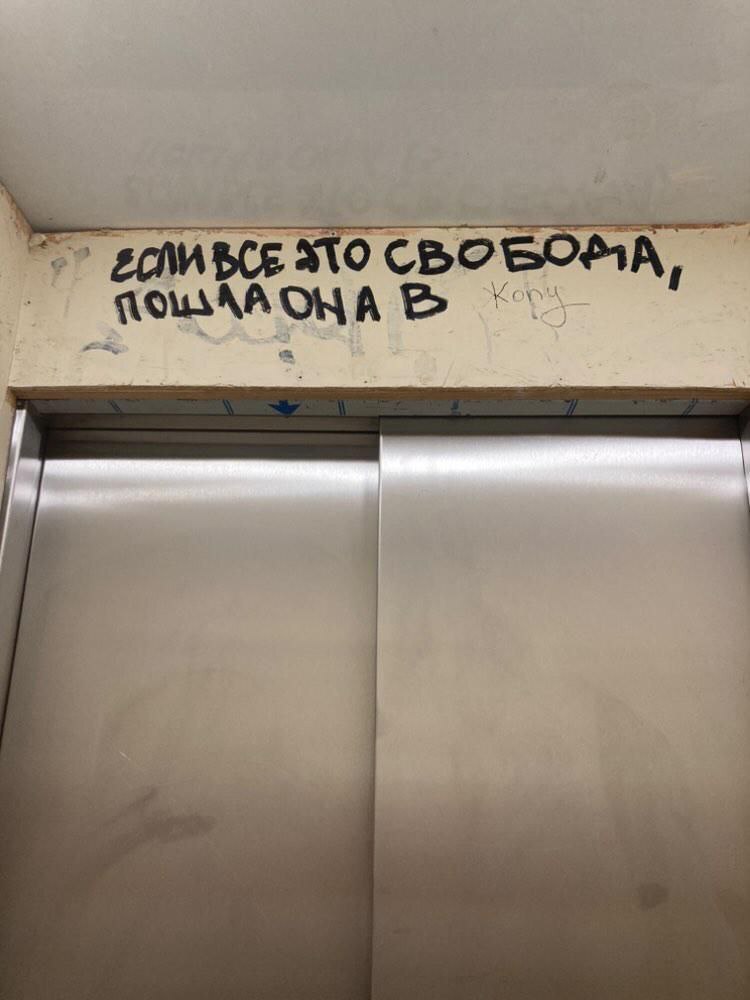 ЕСЛИ ВСЕ ЭТО СВОБОДА,
ПОШЛА ОНА В жопу